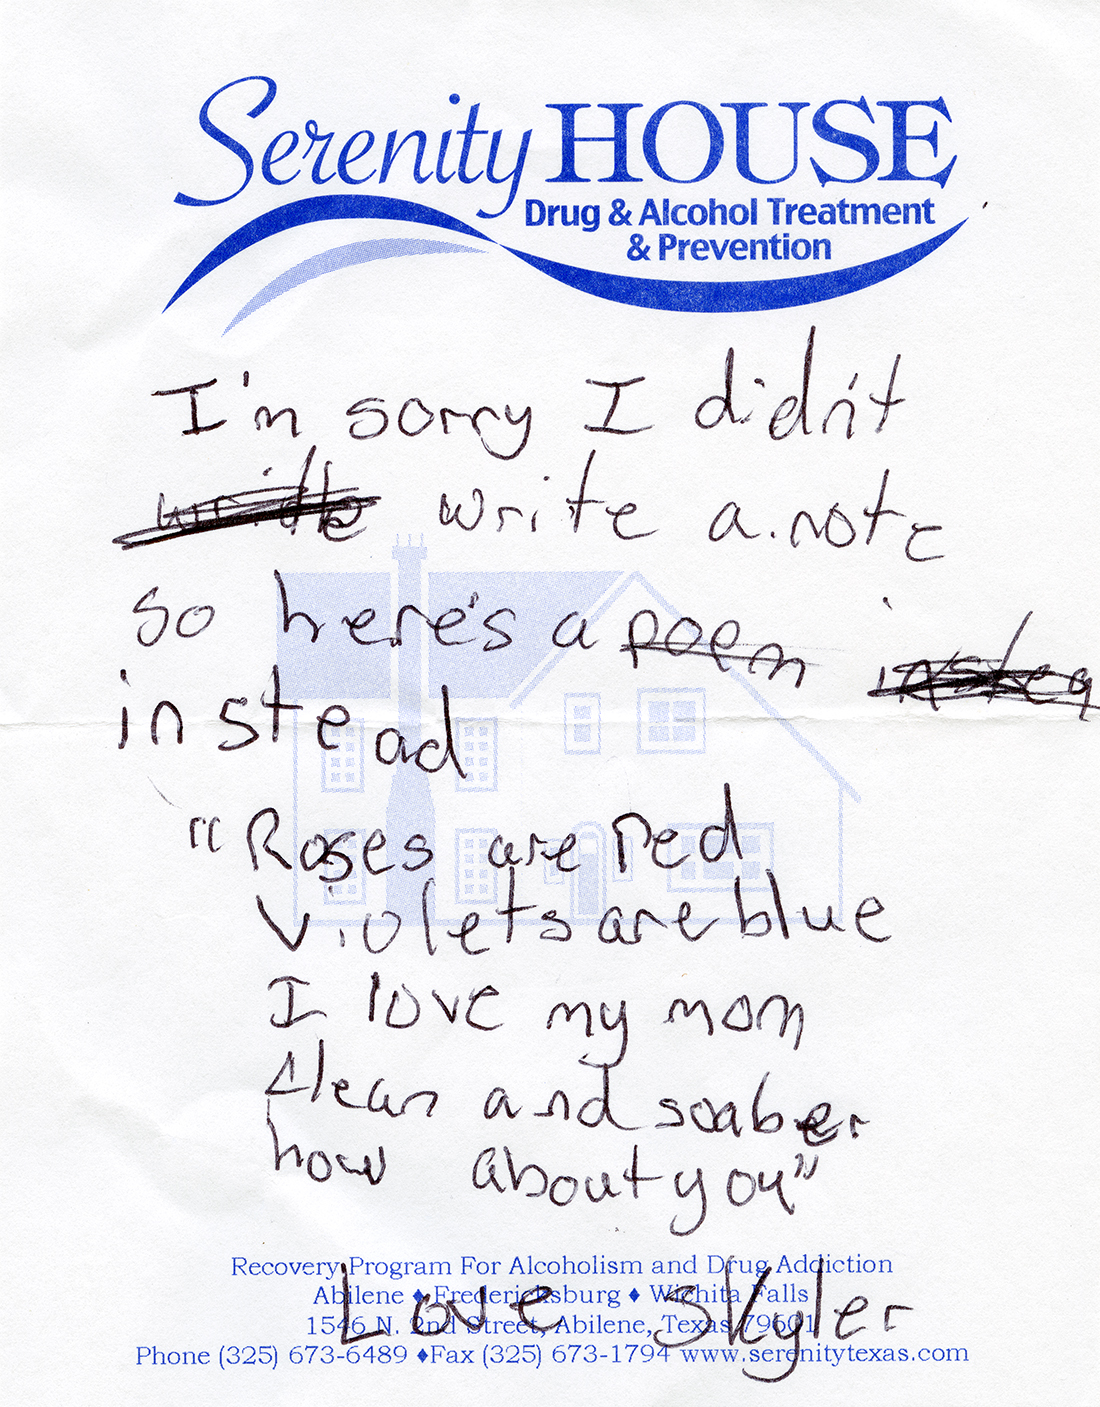 Serenity HOUSE
Drug & Alcohol Treatment
& Prevention
I'm sorry I didn't
write a note
so here's a poem instea
instead
"Roses are red
Violets are blue
I love my mom
Clean and soaber
how about you"
Recovery Program For Alcoholism and Drug Addiction
Abilene ♦ Fredericksburg ♦ Wichita Falls
Love Skyler
1546 N. 2nd Street, Abilene, Texas 79601
Phone (325) 673-6489 ♦Fax (325) 673-1794 www.serenitytexas.com